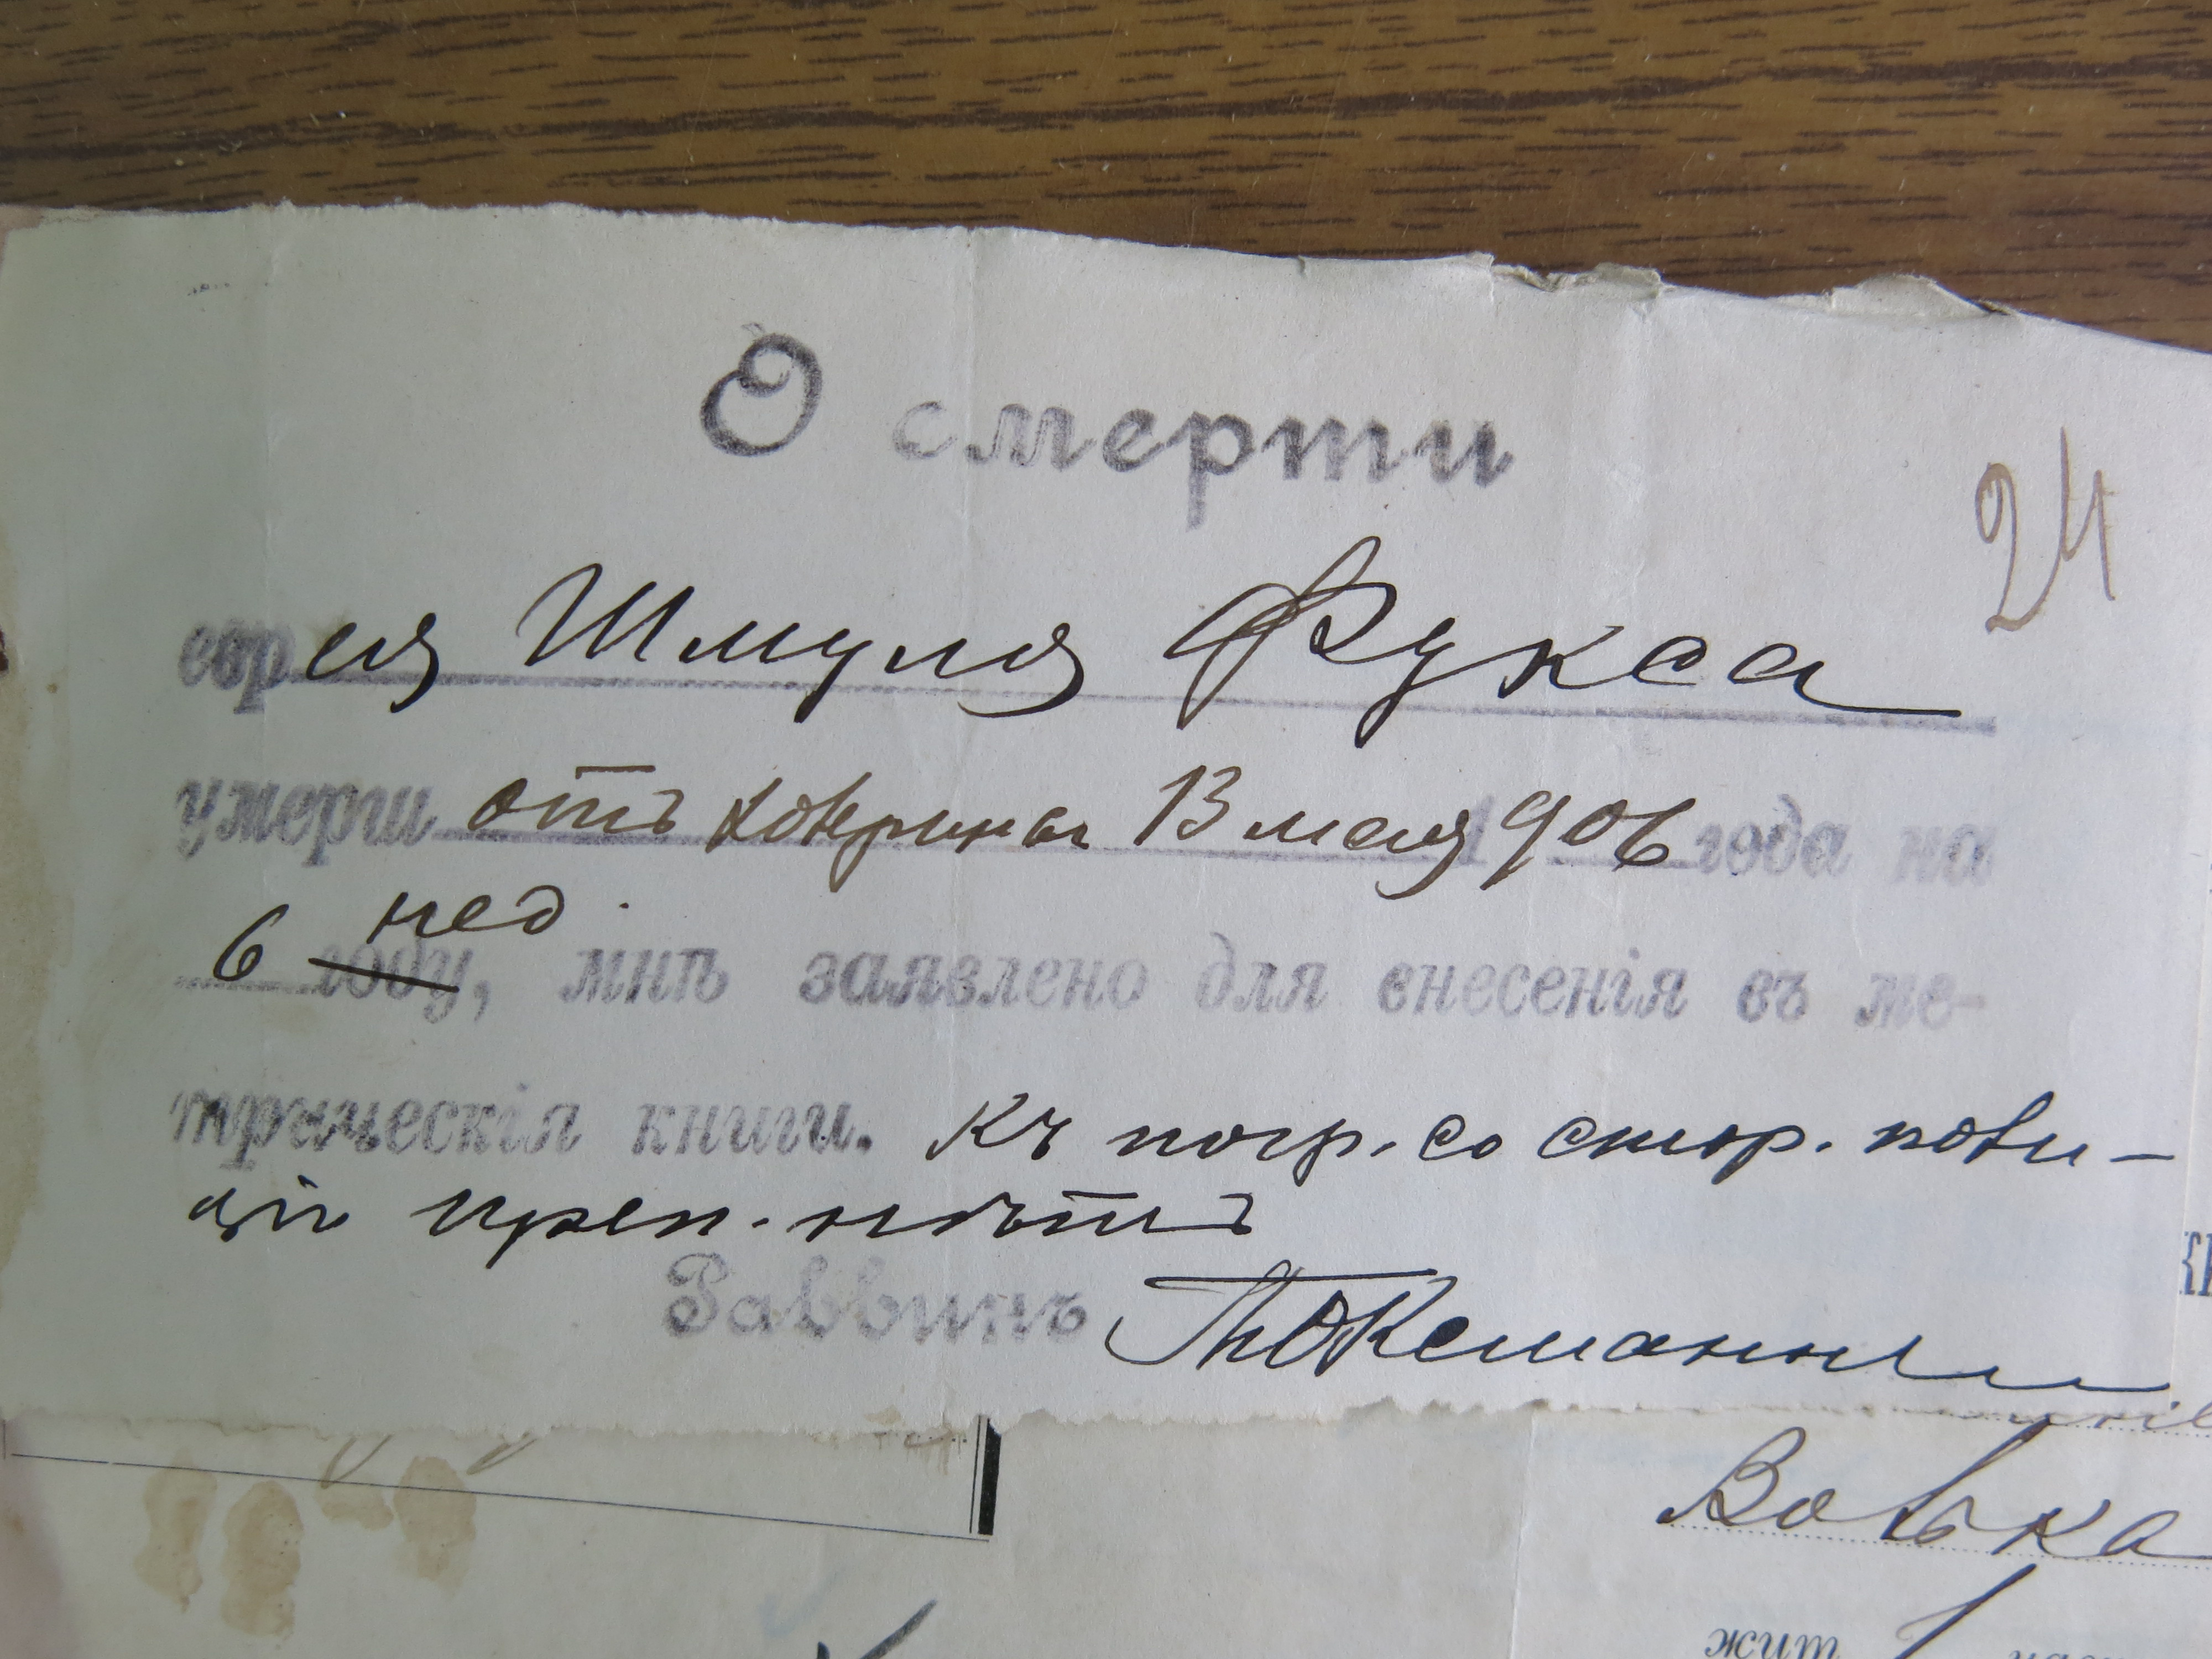 О смерти
24
еврея Шмуля Фукса
умерш отъ 13 мая 1906 года на
6 нед.
году, мнѣ заявлено для внесенія въ ме-
трическія книги. Къ погр. со стор. поли-
ціи преп. нѣтъ
Раввинъ
Вовка
жит